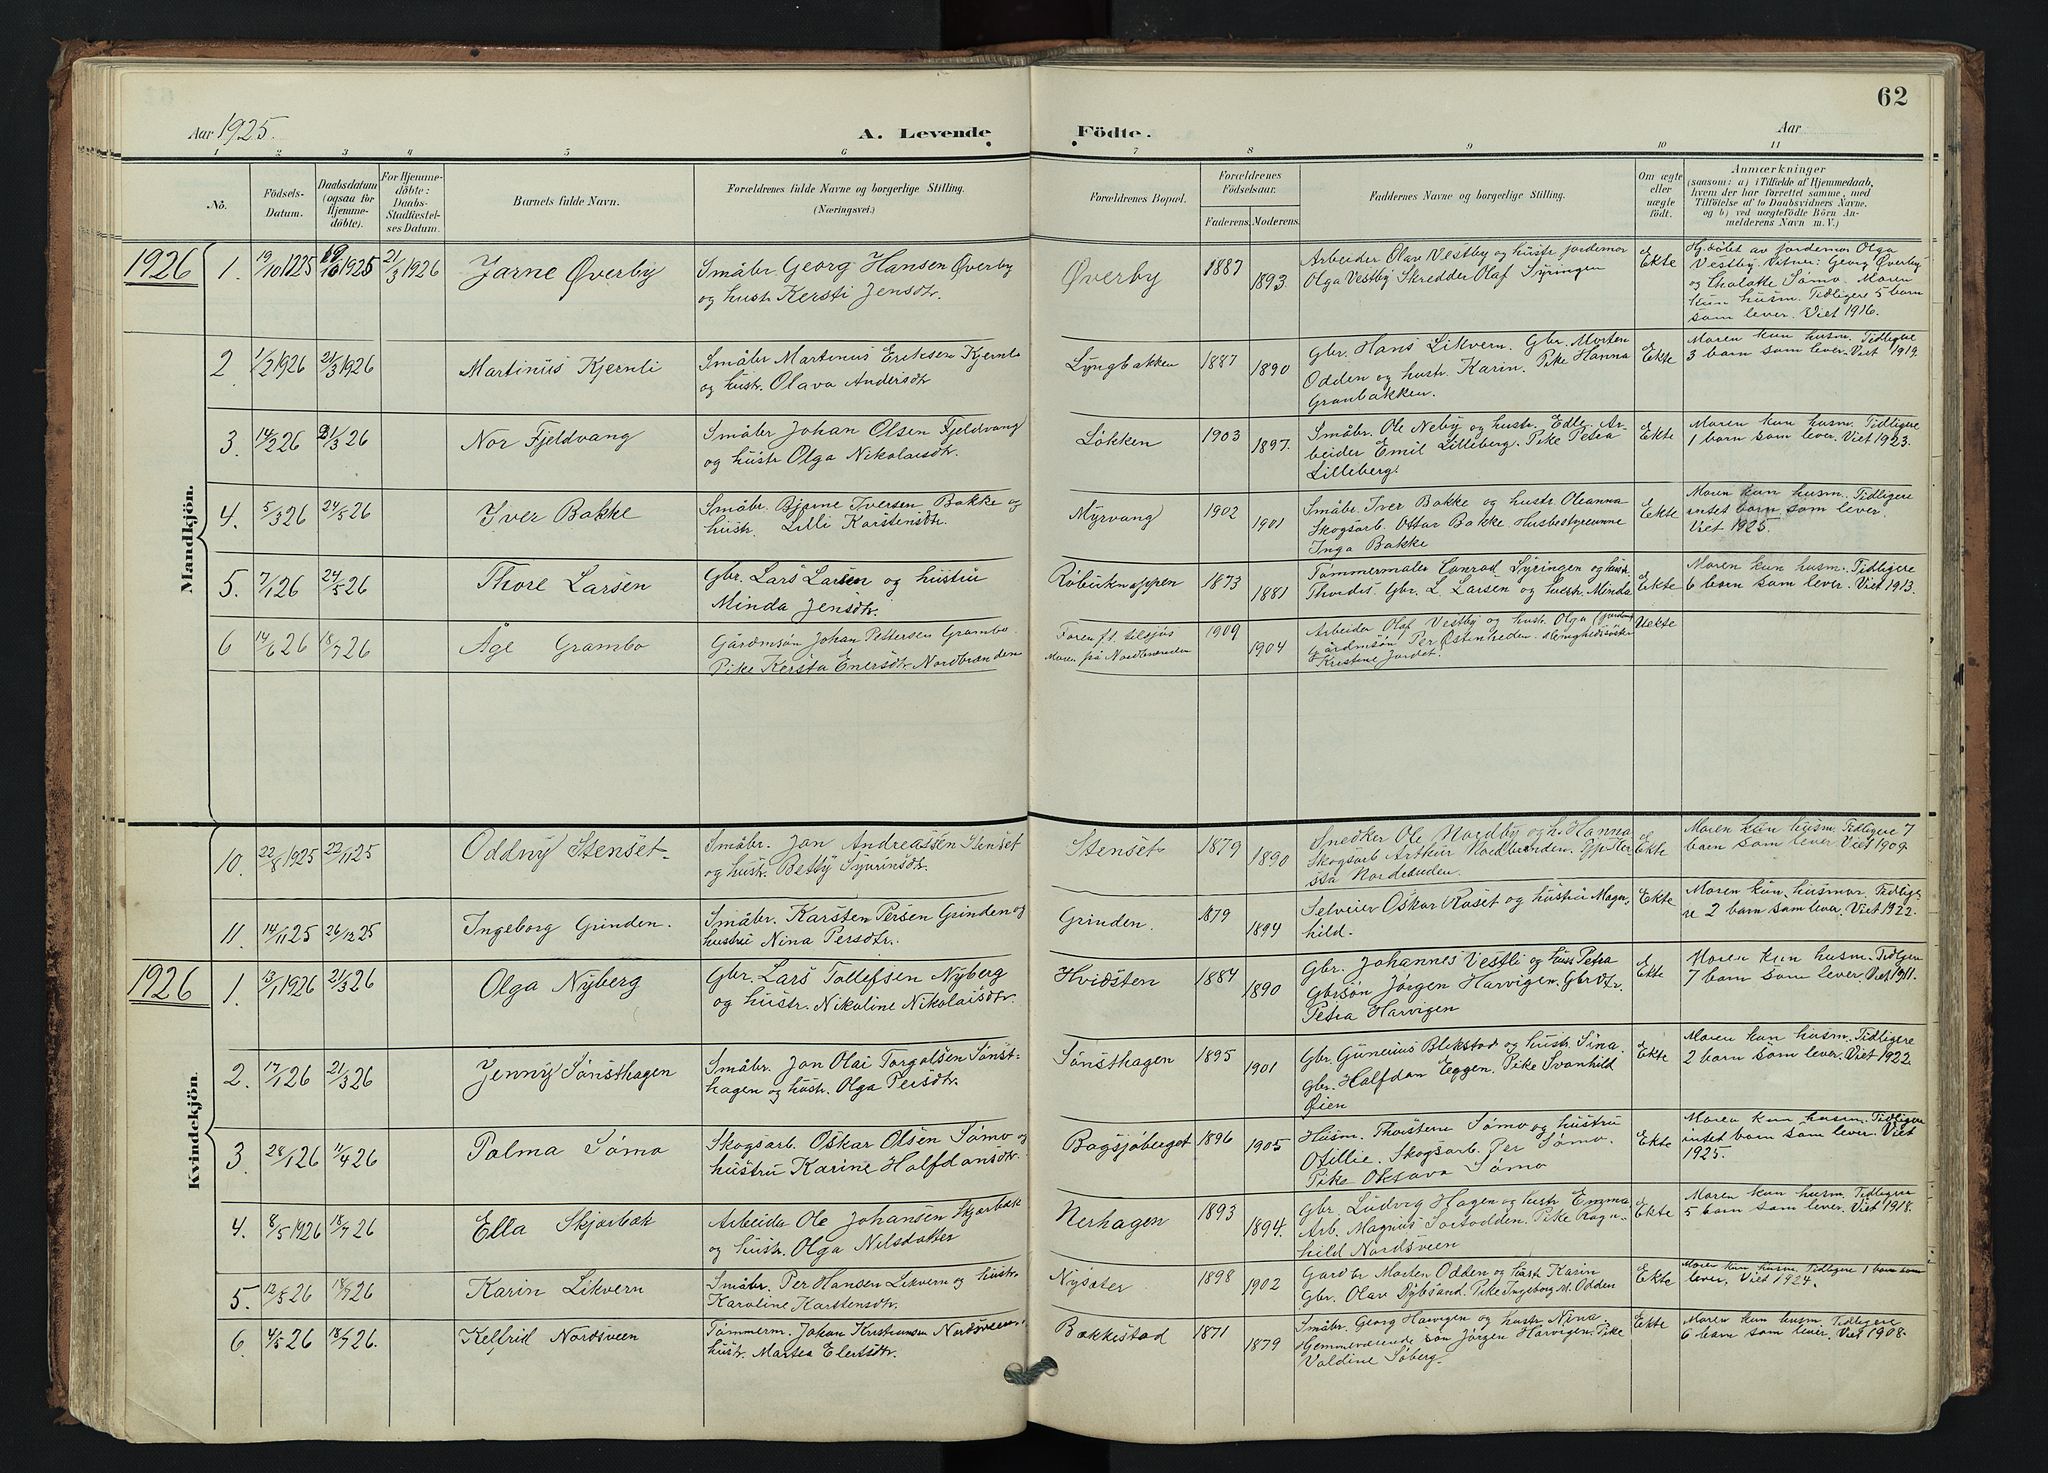 62
Aar 1925. A. Levende Födte. Aar
1 2 3 4 5 6 7 8 9 10 11
Nö. Födsels-Datum. Daabsdatum (ogsaa for Hjemmedöbte). For Hjemmedöbte: Daabs-Stadfæstelses Datum. Barnets fulde Navn. Forældrenes fulde Navne og borgerlige Stilling. (Næringsvei.) Forældrenes Bopæl. Forældrenes Födselsaar. Faderens. Moderens. Faddernes Navne og borgerlige Stilling. Om ægte eller uægte födt. Anmærkninger (saasom: a) i Tilfælde af Hjemmedaab, hvem der har forrettet samme, med Tilföielse af to Daabsvidners Navne, og b) ved uægtefödte Börn Anmelderens Navn m. V.)
Mandkjön.
1926 1. 19/10 1225 19/10 1925 21/3 1926 Jarne Øverby Småbr. Georg Hansen Øverby
og hustr. Kersti Jensdtr. Øverby 1887 1893. Arbeider Olav Vestby og hustr. jordemor
Olga Vestby Skredder Olaf Syringen Ekte Hj. døbt av jordemor Olga
Vestby. Vitner: Georg Øverby
og Sømo. Moren
kun husm. Tidligere 5 barn
som lever. Viet 1916.
2 1/2 1926 21/3 1926 Martinus Kjernli Småbr Martinus Eriksen Kjernli
og hustr. Olava Andersdtr Lyngbakken 1887 1890 Gbr. Hans Likvern. Gbr. Morten
Odden og hustr. Karin. Pike Hanna
Granbakken. Ekte Moren kun husm. Tidligere
3 barn som lever. Viet 1919.
3. 14/2 26 21/3 26 Nor Fjeldvang Småbr Johan Olsen Fjeldvang
og hustr Olga Nikolaisdtr. Løkken 1903 1897. Småbr. Ole Neby og hustr. Edle. Ar-
beider Emil Lilleberg. Pike Petra
Lilleberg. Ekte Moren kun husm. Tidligere
1 barn som lever. Viet 1923.
4. 5/3 26 24/5 26 Iver Bakke Småbr. Bjarne Iversen Bakke og
hustr. Lilli Karstensdtr. Myrvang 1902 1901 Småbr. Iver Bakke og hustr. Oleanna
Skogsarb. Ottar Bakke. Husbestyrerinne
Inga Bakke Ekte Moren kun husm. Tidligere
intet barn som lever.
Viet 1925.
5. 7/1 26 24/5 26 Thore Larsen Gbr. Lars Larsen og hustru
Minda Jensdtr. Røbuknappen 1873 1881 Tømmermaler Conrad Syringen og hustr
Thordis. Gbr. L. Larsen og hustr. Minda Ekte Moren kun husm. Tidligere
6 barn som lever. Viet 1913.
6 14/6 26 18/7 26 Åge Grambo Gårdmsøn Johan Pettersen Grambo.
Pike Kersta Enersdtr. Nordbrænden Faren f.t. tilsjøs
Moren fra Nordbrænden 1909 1904 Arbeider Olaf Vestby og hustr. Olga (jordm)
Gårdmsøn Per Østenheden. Menighedssøster
Kristine Jordet. Uekte
Kvindekjön.
10. 22/8 1925 22/11 25 Oddny Stenset Småbr. Jan Andreassen Stenset
og hustr. Betsy Syverinsdtr. Stenset 1879 1890 Snedker Ole Nordby og h. Hanna
Skogsarb Arthur Nordbrenden. Ekte Moren kun husm. Tidligere 7
barn som lever Viet 1909.
11. 14/11 25 26/12 25 Ingeborg Grinden. Småbr. Karsten Persen Grinden og
hustru Nina Persdtr. Grinden. 1879 1894 Selveier Oskar Raset og hustru Magn-
hild. Ekte Moren kun husmor. Tidlige-
re 2 barn som lever. Viet 1922.
1926 1. 13/1 1926 21/3 26 Olga Nyberg Gbr. Lars Tollefsen Nyberg
og hustr. Nikoline Nikolaisdtr. Hvidsten 1884 1890 Gbr. Johannes Vestli og hus. Petra
Gbrsøn Jørgen Harvigen. Gbrdtr.
Petra Harvigen Ekte Moren kun husm. Tidligere
7 barn som lever. Viet 1911.
2. 17/1 26 21/3 26 Jenny Sønsthagen Småbr. Jon Olai Torgalsen Sønst-
hagen og hustr. Olga Persdtr. Sønsthagen 1895 1901 Gbr. Gunerius Blekstad og hustr. Sina.
Gbr. Halfdan Eggen. Pike Svanhild
Øien Ekte Moren kun husm. Tidligere
2 barn som lever. Viet 1922.
3. 28/1 26 11/4 26 Palma Sømo Skogsarb. Oskar Olsen Sømo og
hustru Karine Halfdansdtr. Bogsjøberget 1896 1905 Husm. Thorstein Sømo og hustru
Otillie. Skogsarb. Per Sømo.
Pike Oktava Sømo Ekte Moren kun husm. Tidligere
intet barn som lever. Viet
1925.
4. 8/5 1926 18/7 26 Ella Skjærbæk Arbeider Ole Johansen Skjærbæk
og hustr. Olga Nilsdatter Nerhagen 1893 1894. Gbr. Ludvig Hagen og hustr Emma
Arb. Magnus Sortodden. Pike Ragn-
hild Nordsveen Ekte Moren kun husm. Tidligere
5 barn som lever. Viet 1918.
5. 12/5 26 18/7 26 Karin Likvern Småbr. Per Hansen Likvern og hustr.
Karoline Karstensdtr. Nysæter 1898 1902 Gardbr Morten Odden og hustr Karin
Gbr. Olav Dybsand. Pike Ingeborg M. Odden Ekte Moren kun husm. Tidligere 1 barn som
lever. Viet 1924.
6. 4/5 26 18/7 26. Kelfrid Nordsveen Tømmerm. Johan Kristiansen Nordsveen
hustr. Martea Elertsdtr. Bakkestad 1871 1879 Småbr. Georg Harvigen og hustr. Nina
Hjemmeværende søn Jørgen Harvigen. Pike
Valdine Søberg. Ekte Moren kun husm. Tidligere
6 barn som lever. Viet 1908.